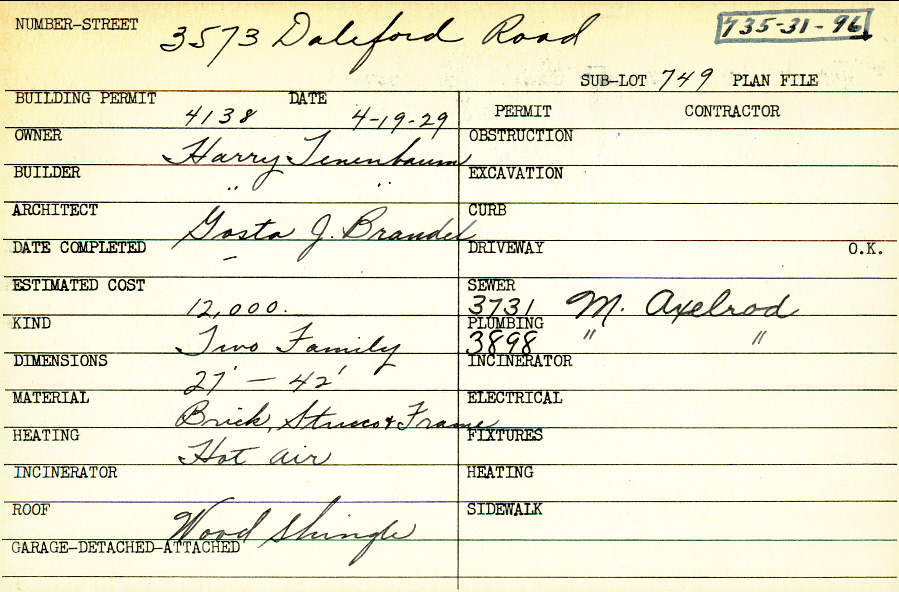 NUMBER-STREET 3573 Daleford Road 735-31-96
SUB-LOT 749 PLAN FILE
BUILDING PERMIT 4138 DATE 4-19-29
PERMIT CONTRACTOR
OWNER Harry Tenenbaum
OBSTRUCTION
BUILDER " "
EXCAVATION
ARCHITECT Gosta J. Brandel
CURB
DATE COMPLETED -
DRIVEWAY O.K.
ESTIMATED COST 12,000.
SEWER 3731 M. Axelrod
KIND Two Family
PLUMBING 3898 " "
DIMENSIONS 27' - 42'
INCINERATOR
MATERIAL Brick, Stucco & Frame
ELECTRICAL
HEATING Hot air
FIXTURES
INCINERATOR
HEATING
ROOF Wood Shingle
SIDEWALK
GARAGE-DETACHED-ATTACHED